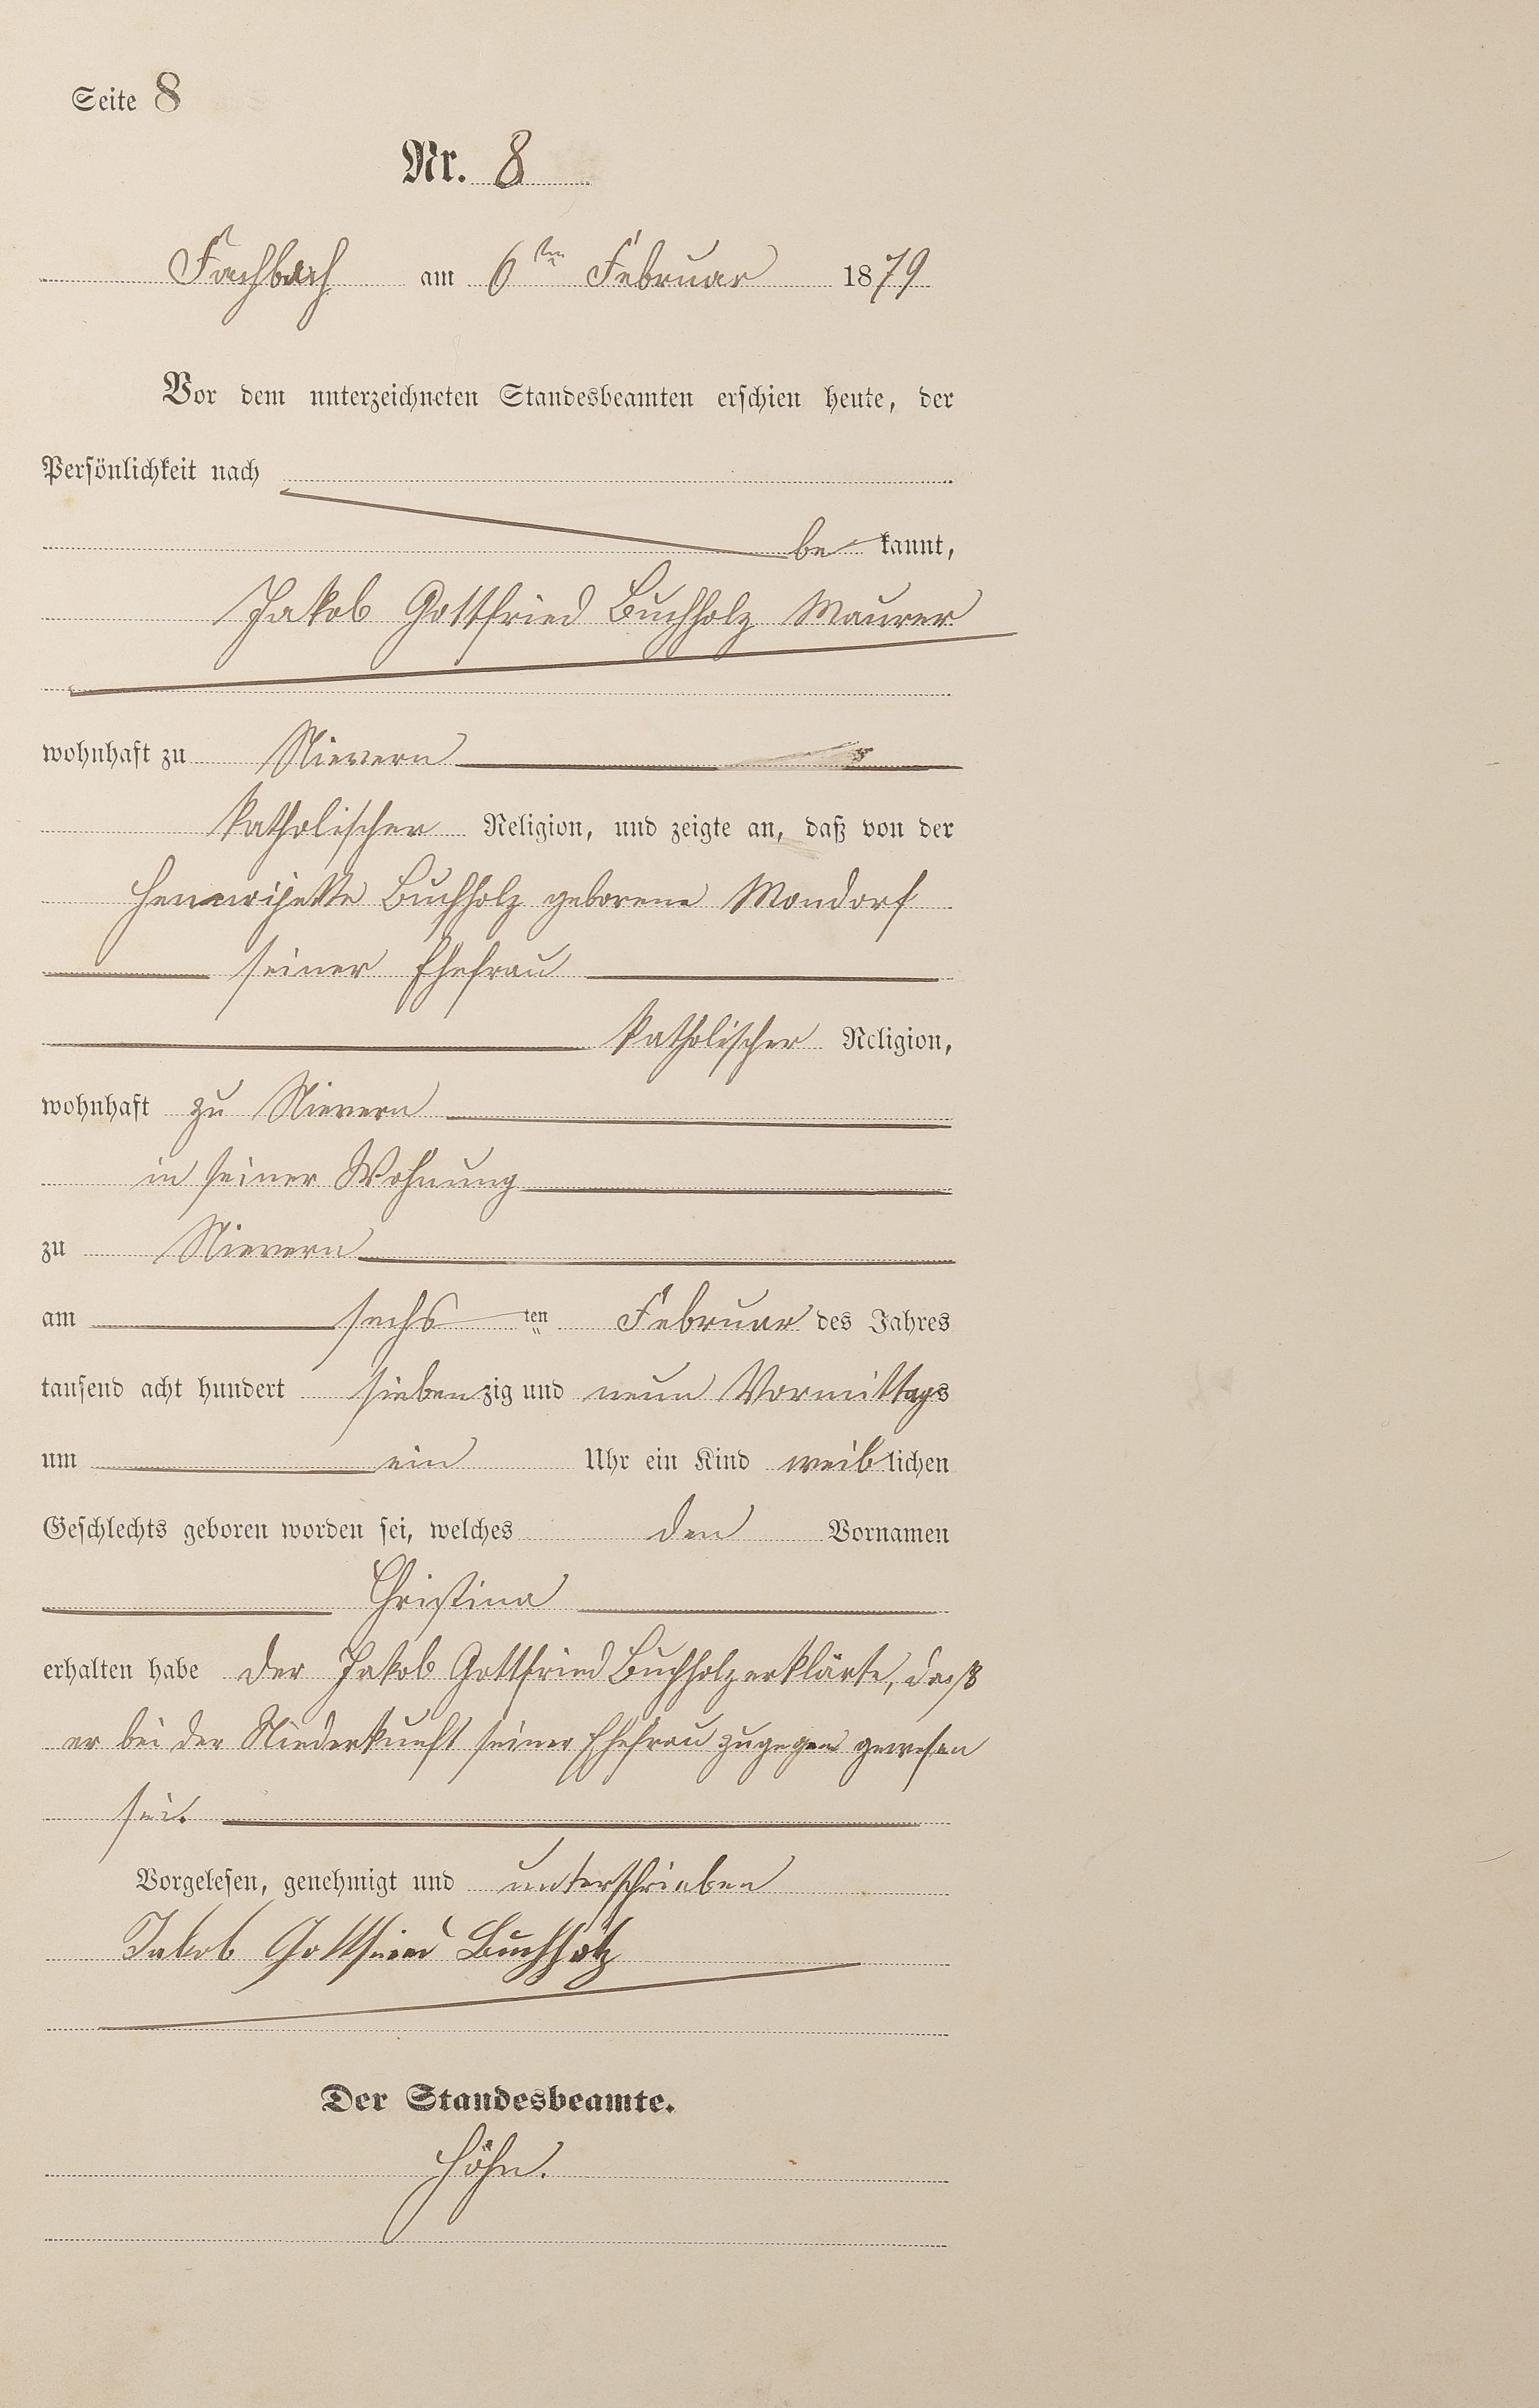 Seite 8
Nr. 8
Fachbach am 6ten Februar 1879
Vor dem unterzeichneten Standesbeamten erschien heute, der
Persönlichkeit nach
be kannt,
Jakob Gottfried Buchholz Maurer
wohnhaft zu Nievern
katholischer Religion, und zeigte an, daß von der
Buchholz geborene Mondorf
seiner Ehefrau
katholischer Religion,
wohnhaft zu Nievern
in seiner Wohnung
zu Nievern
am sechs ten Februar des Jahres
tausend acht hundert siebenzig und neun Vormittags
um ein Uhr ein Kind weiblichen
Geschlechts geboren worden sei, welches den Vornamen
Christina
erhalten habe der Jakob Gottfried Buchholz erklärte, daß
er bei der Niederkunft seiner Ehefrau zugegen gewesen
sei.
Vorgelesen, genehmigt und unterschrieben
Jakob Gottfried Buchholz
Der Standesbeamte.
Höhn.